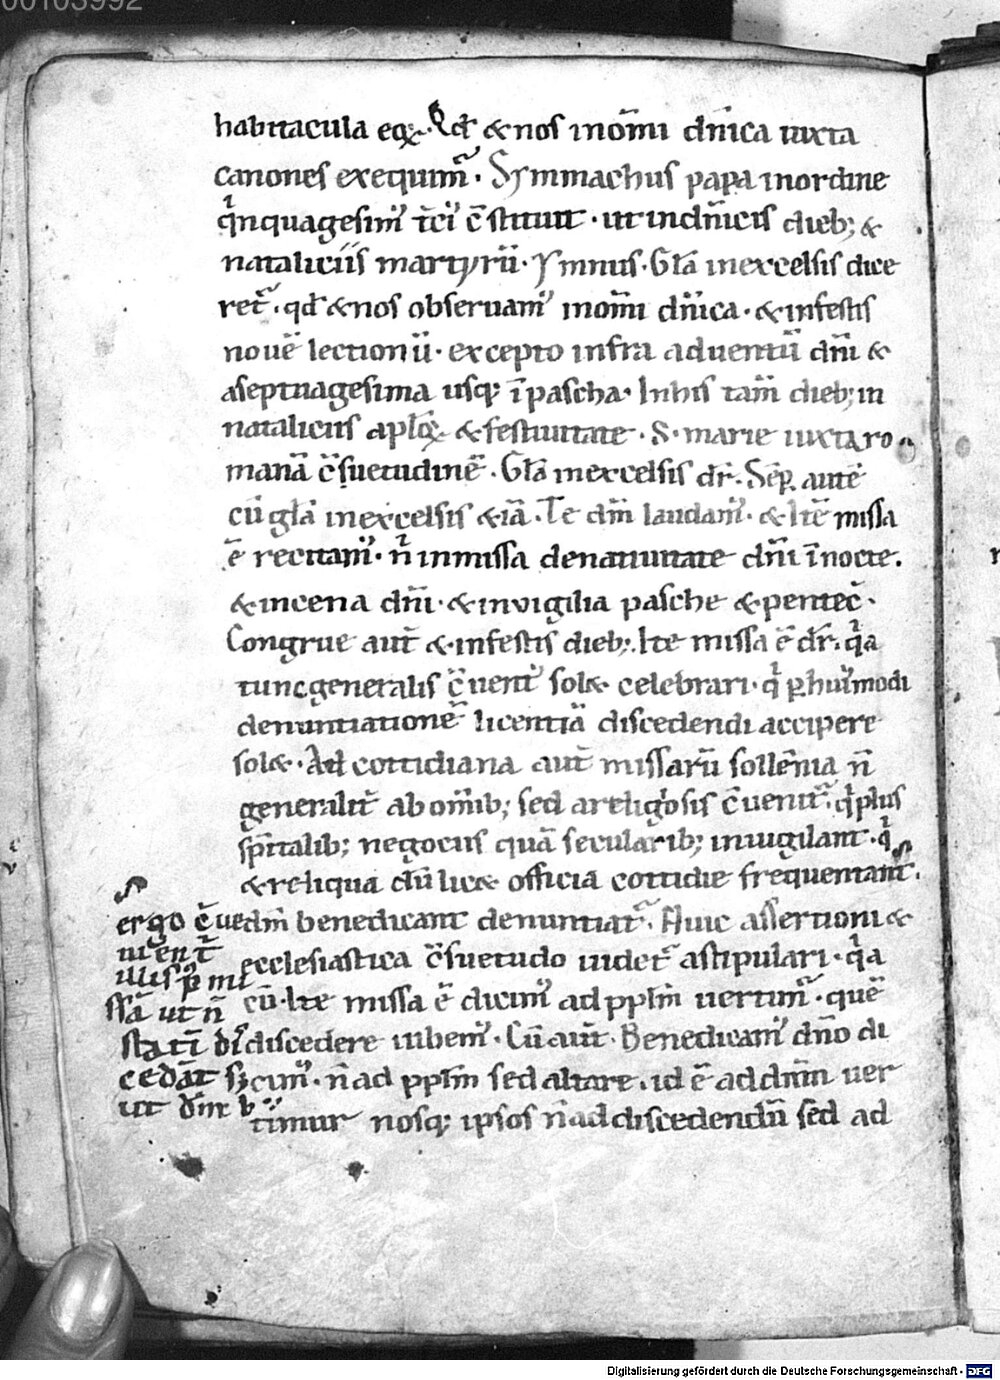 00103992
habitacula eoꝝ. Qđ &nos inom̄i dn̄ica iuxta
canones exequim᷒. Symmachus papa inordine
qͥnquagesim᷒ t̄ci᷒ c̄stituit. ut indn̄icis dieb; &
nataliciis martyrū. Ymnus. Gl̄a inexcelsis dice
ret᷒. qđ &nos obseruam᷒ inom̄i dn̄ica. &infestis
nouē lectionū. excepto infra aduentū dn̄i &
aseptuagesima usq; ī pascha. Inhis tam̄ dieb; in
nataliciis apl̄oꝝ &festiuitate. S. marie iuxta ro
manā c̄suetudinē. Gl̄a inexcelsis dr̄. Sēp autē
cū gl̄a inexcelsis &iā. Te dm̄ laudam᷒. & Ite missa
ē recitam᷒. n̄ inmissa denatiuitate dn̄i ī nocte.
&incena dn̄i. &invigilia pasche &pentec̄.
Congrue aut̄ &infestis dieb; Ite missa ē dr̄. qͥa
tunc generalis c̄uent᷒ sol& celebrari. qͥ ꝑ hui᷒modi
denuntiationē licentiā discedendi accipere
sol&. Ad cottidiana aut̄ missarū sollēnia n̄
generalit̄ ab om̄ib; sed areligiosis c̄uenit᷒. qͥ plus
sp̄italib; negociis quā secularib; inuigilant. qͥ
&reliqua diuīlic& officia cottidie frequentant.
ergo c̄ue dm̄ benedicant denuntiat᷒. Huic assertioni &
nient̄ ecclesiastica c̄suetudo uidet᷒ astipulari. qͥa
illis ꝑ mi cū. Ite missa ē dicim᷒ ad ppl̄m uertim᷒. quē
ssā ut n̄ discedere iubem᷒. Cū aut̄. Benedicam᷒ dn̄o di
statī di cim᷒. n̄ ad ppl̄m sed altare. id ē ad dn̄m uer
cedāt sȝ timur nosq; ipsos n̄ ad discedendū sed ad
ut dm̄ b
Digitalisierung gefördert durch die Deutsche Forschungsgemeinschaft - DFG